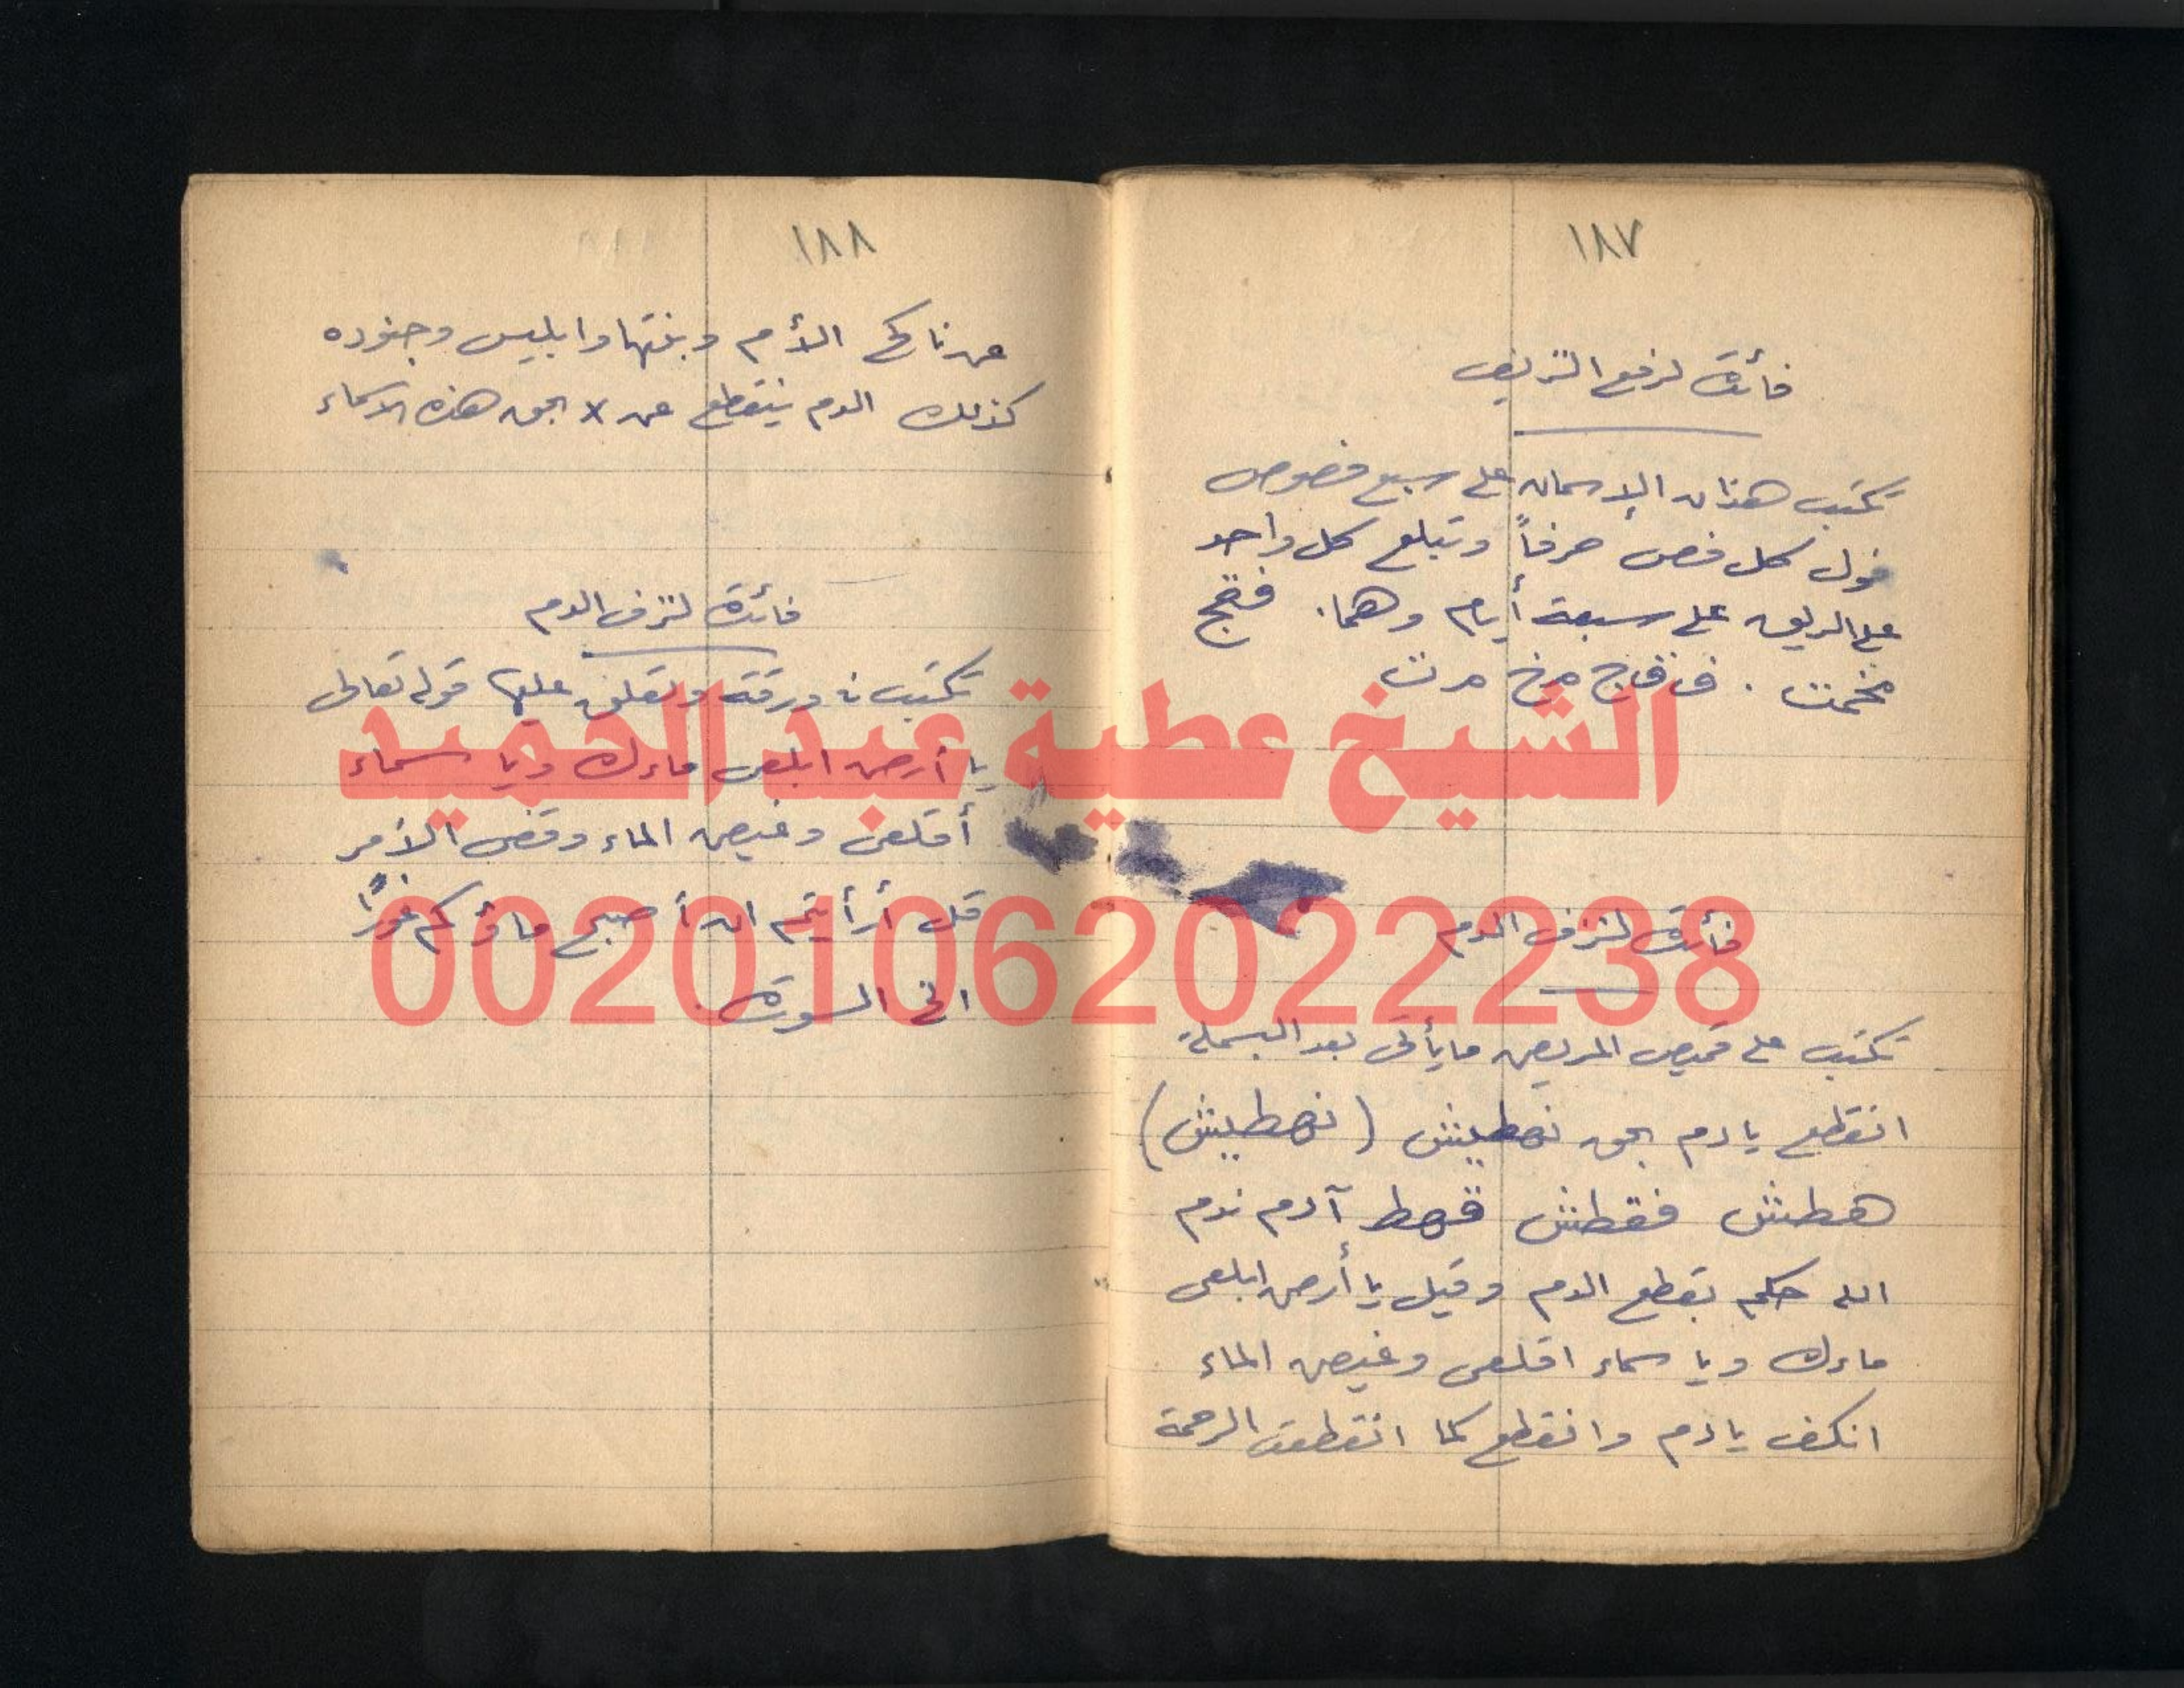 ١٨٧
فائدة لرفع النزيف
تكتب هذان الإسمان على سبع فصوص
فول كل فص حرفاً وتبلع كل واحد
على الريق على سبعة أيام وهما . فقج
مخمت . ف ق ج م خ م ت
فائدة لنزف الدم
تكتب على قميص المريض ما يأتى بعد البسملة
انقطع يا دم بحق نهطيش (نهطيش)
هطش فقطش قهط آدم ندم
الله حكم بقطع الدم وقيل يا أرض ابلعى
ماءك ويا سماء اقلعى وغيض الماء
انكف يا دم وانقطع كما انقطعت الرحمة
١٨٨
عن ناكح الأم وبنتها وابليس وجنوده
كذلك الدم ينقطع عن x بحق هذه الاسماء
فائدة لنزف الدم
تكتب فى ورقة وتعلق عليها قوله تعالى
يا أرض ابلعى ماءك ويا سماء
أقلعى وغيض الماء وقضى الأمر
قل أرأيتم ان أصبح ماؤكم غورًا
الخ السورة .
الشيخ عطية عبد الحميد
00201062022238